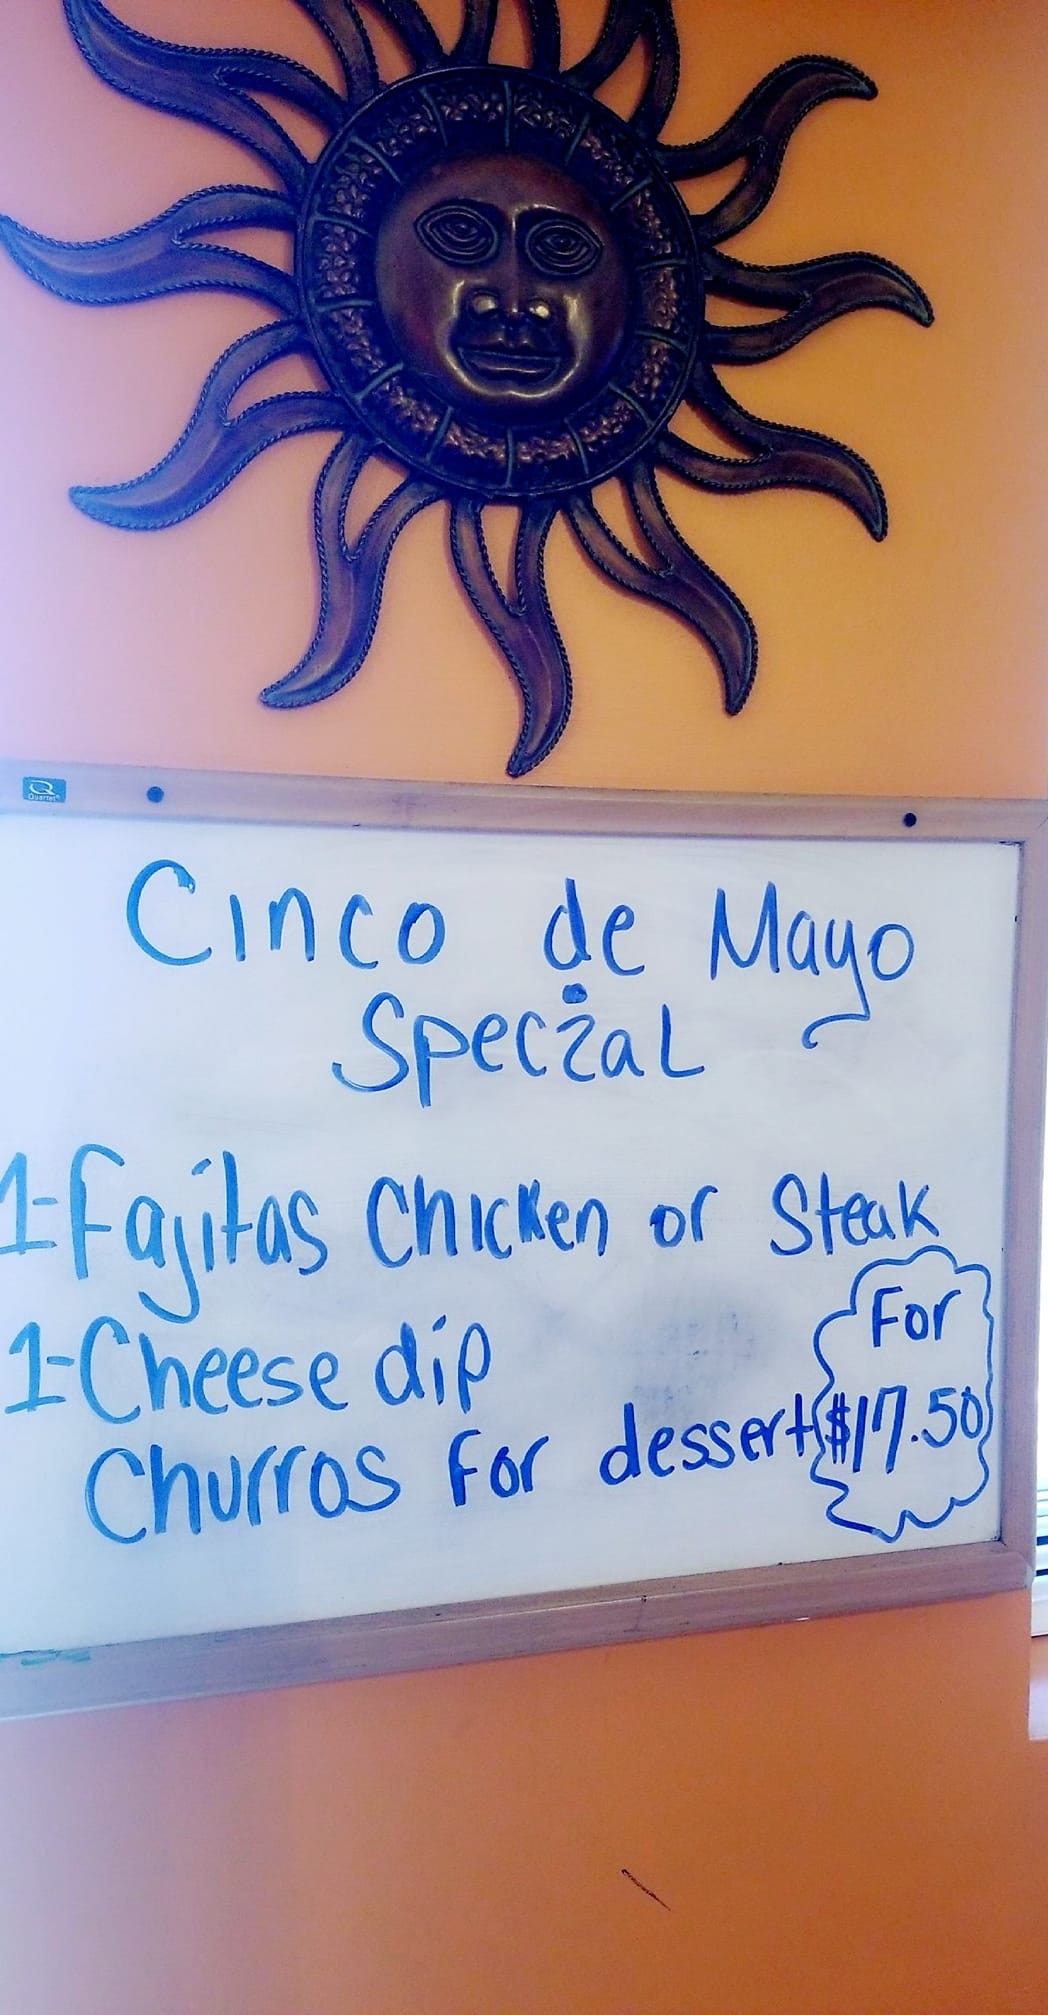 Quartet®
Cinco de Mayo
Special
1-Fajitas Chicken or Steak
1-Cheese dip
Churros For dessert
For
$17.50